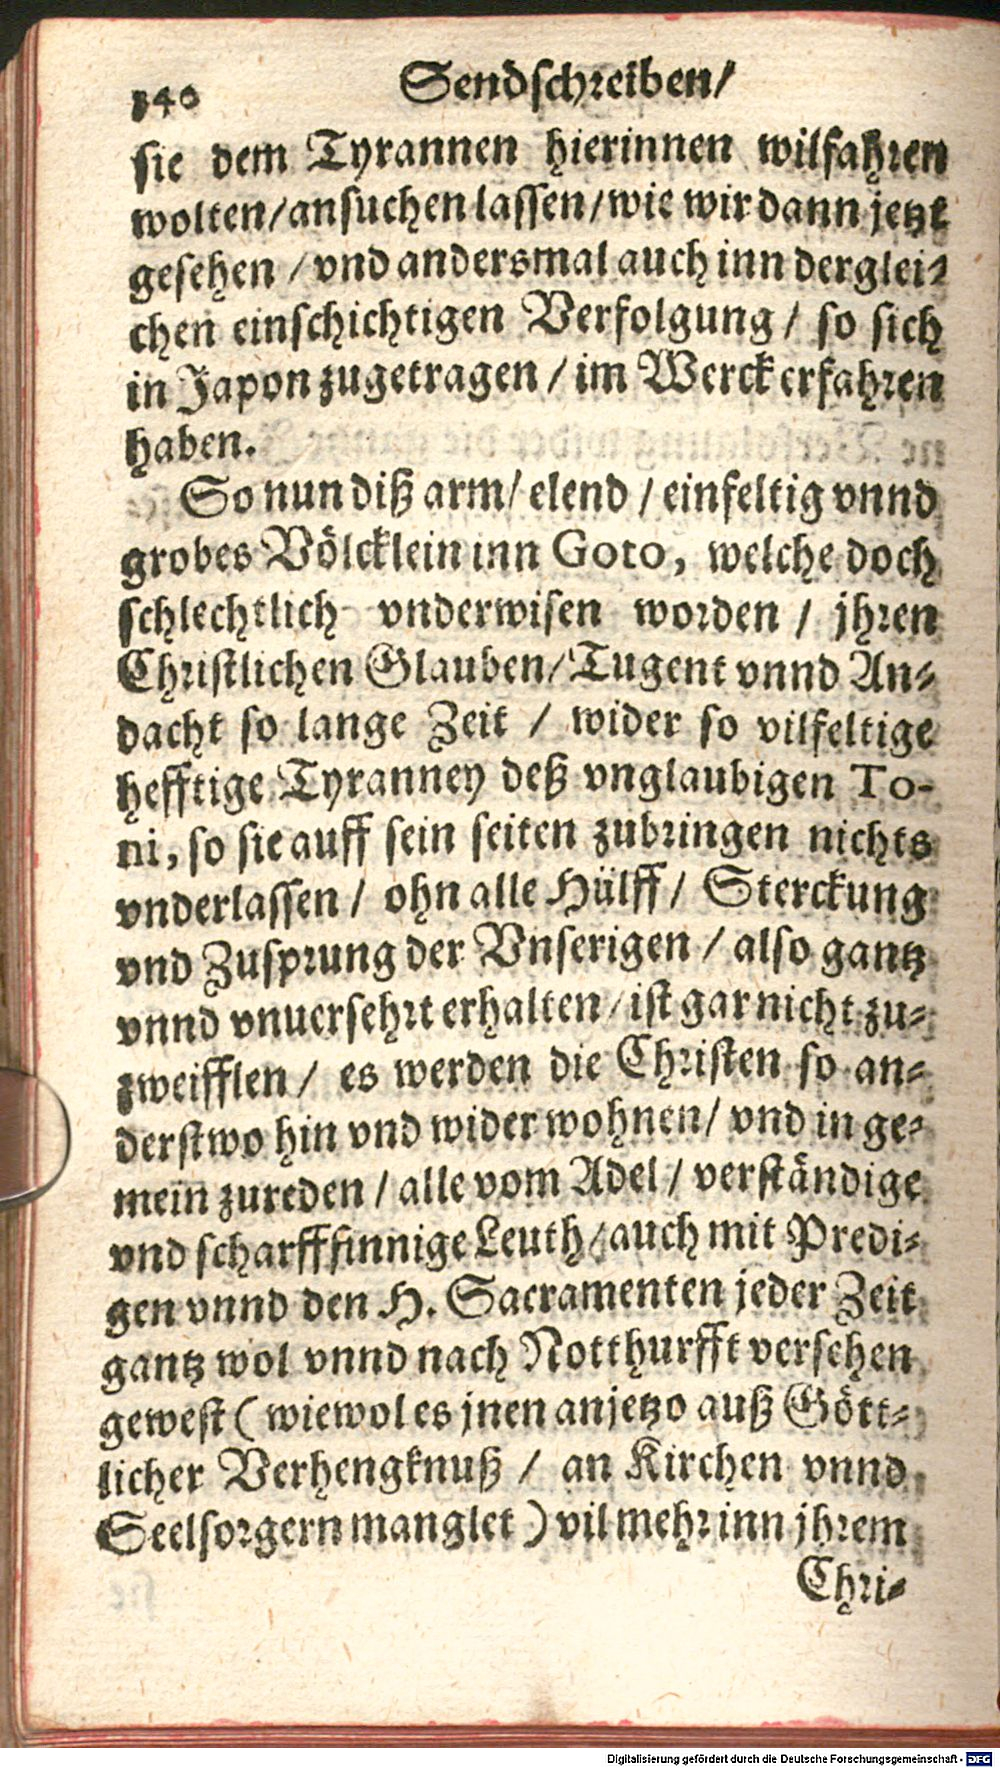 140 Sendschreiben/
sie dem Tyrannen hierinnen wilfahren
wolten/ansuchen lassen/wie wir dann jetzt
gesehen / vnd andersmal auch inn derglei-
chen einschichtigen Verfolgung / so sich
in Japon zugetragen / im Werck erfahren
haben.
So nun diß arm/ elend / einfeltig vnnd
grobes Völcklein inn Goto, welche doch
schlechtlich vnderwisen worden / jhren
Christlichen Glauben/Tugent vnnd An-
dacht so lange Zeit / wider so vilfeltige
hefftige Tyranney deß vnglaubigen To-
ni, so sie auff sein seiten zubringen nichts
vnderlassen / ohn alle Hülff / Sterckung
vnd Zusprung der Vnserigen / also gantz
vnnd vnuersehrt erhalten / ist gar nicht zu-
zweifflen / es werden die Christen so an-
derstwo hin vnd wider wohnen/ vnd in ge-
mein zureden / alle vom Adel / verständige
vnd scharffsinnige Leuth / auch mit Predi-
gen vnnd den H. Sacramenten jeder Zeit
gantz wol vnnd nach Notthurfft versehen
gewest ( wiewol es jnen anjetzo auß Gött-
licher Verhengknuß / an Kirchen vnnd
Seelsorgern manglet ) vil mehr inn jhrem
Chri-
Digitalisierung gefördert durch die Deutsche Forschungsgemeinschaft - DFG